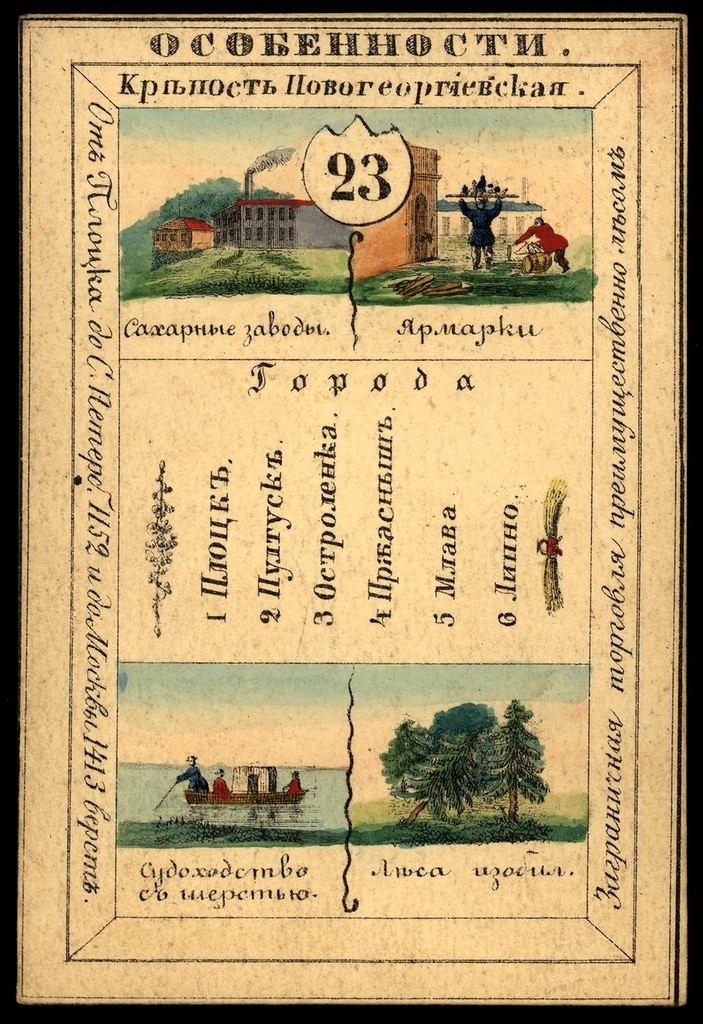 ОСОБЕННОСТИ.
Крѣпость Новогеоргіевская.
23
Сахарные заводы.
Ярмарки
Города
1 Плоцкъ.
2 Пултускъ.
3 Остроленка.
4 Пржаснышъ.
5 Млава
6 Липно.
Судоходство
съ шерстью.
Лѣса изобил.
Отъ Плоцка до С. Петерб. 1152 и до Москвы 1413 верстъ.
Заграничная торговля преимущественно лѣсомъ